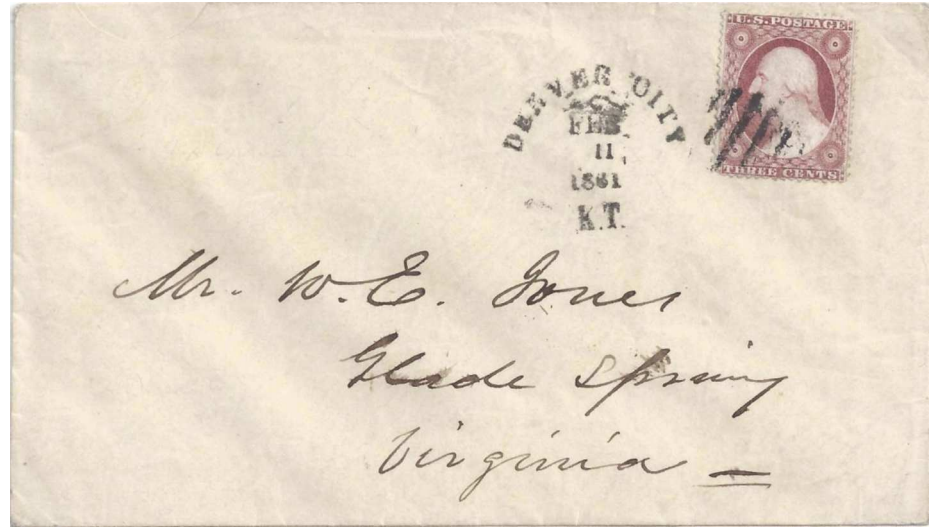 U.S. POSTAGE
THREE CENTS
DENVER CITY
FEB
11
1861
K.T.
Mr. W. E. Jones
Glade Spring
Virginia